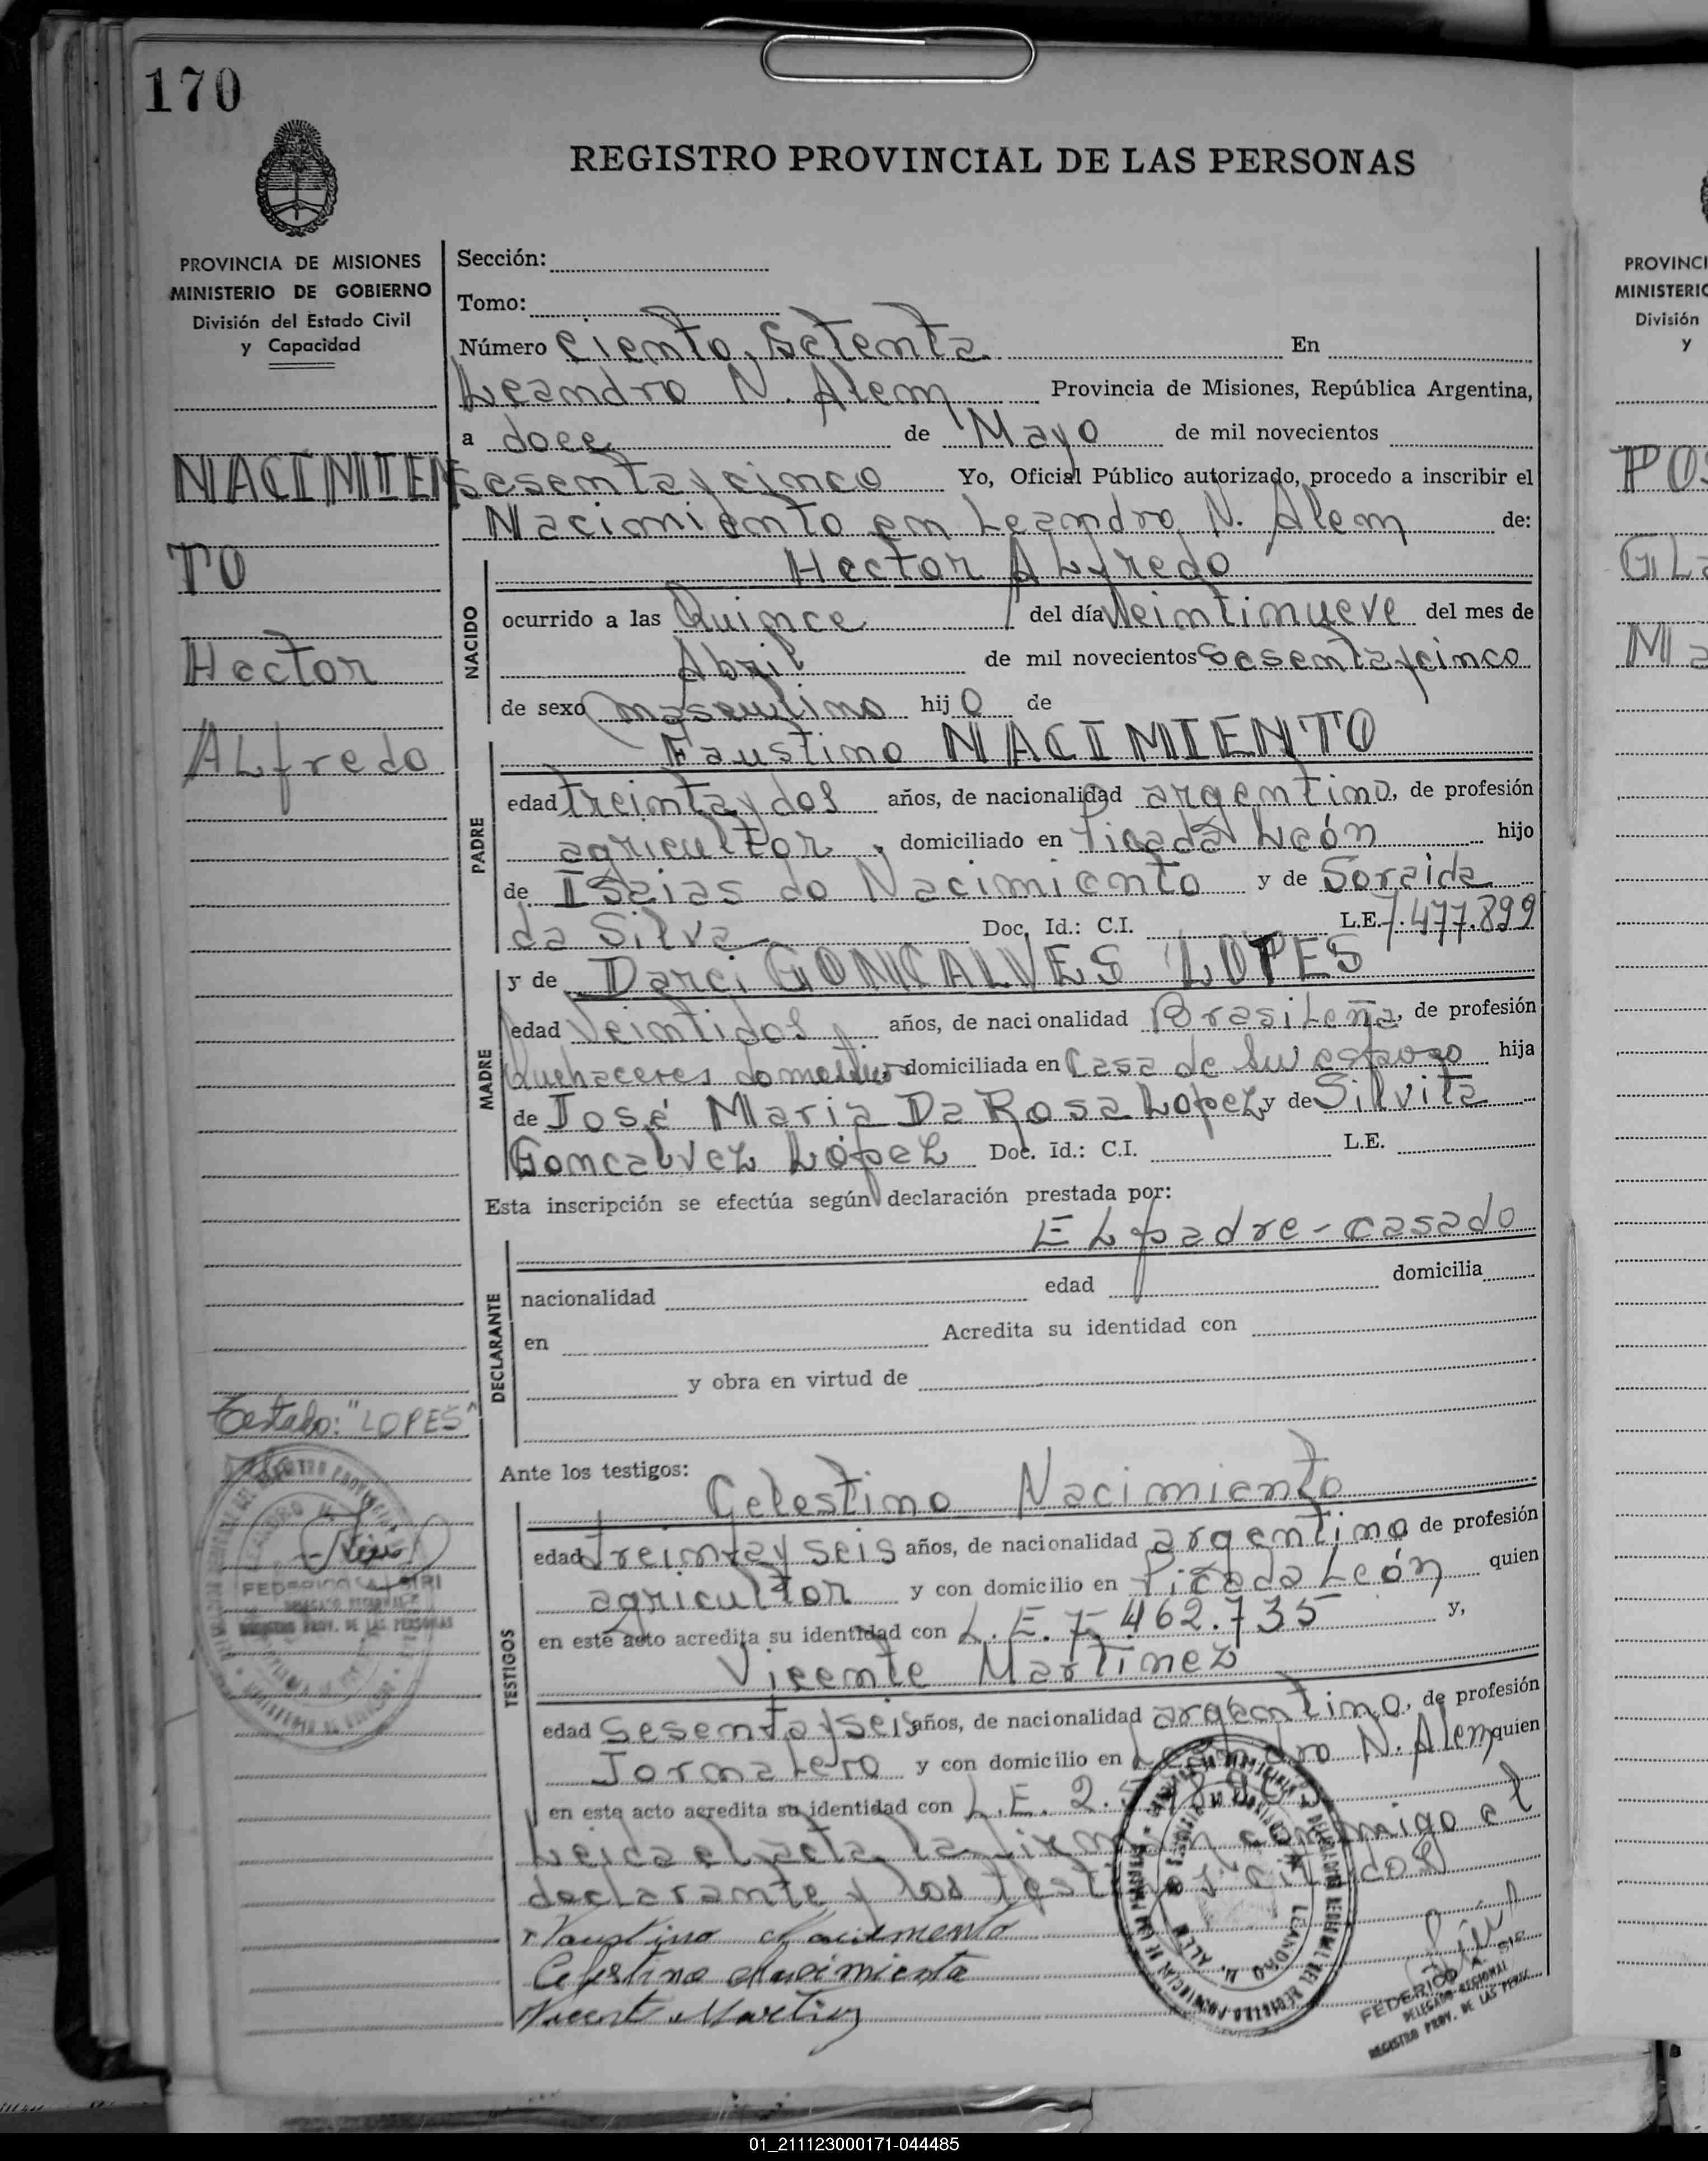 170
REGISTRO PROVINCIAL DE LAS PERSONAS
PROVINCIA DE MISIONES
MINISTERIO DE GOBIERNO
División del Estado Civil
y Capacidad
NACIMIEN
TO
Hector
ALfredo
Testado: "LOPES"
FEDERICO A. SIRI
DELEGADO REGIONAL
REGISTRO PROV. DE LAS PERSONAS
Sección:
Tomo:
Número ciento setenta En
Leandro N. Alem Provincia de Misiones, República Argentina,
a doce de Mayo de mil novecientos
sesenta y cinco Yo, Oficial Público autorizado, procedo a inscribir el
Nacimiento en Leandro N. Alem de:
Hector ALfredo
NACIDO
ocurrido a las Quince del día Veintinueve del mes de
Abril de mil novecientos sesenta y cinco
de sexo masculino hijo de
Faustino NACIMIENTO
PADRE
edad treinta y dos años, de nacionalidad argentino, de profesión
agricultor, domiciliado en Picada León hijo
de Isaias do Nacimiento y de Soraida
da Silva Doc. Id.: C.I. L.E. 7.477.899
y de Darci GONCALVES LOPES
MADRE
edad Veintidos años, de nacionalidad BrasiLeña, de profesión
Quehaceres domesticos, domiciliada en Casa de su esposo hija
de José Maria Da Rosa Lopez y de Silvita
Goncalvez López Doc. Id.: C.I. L.E.
Esta inscripción se efectúa según declaración prestada por:
EL padre - casado
DECLARANTE
nacionalidad edad domicilia
en Acredita su identidad con
y obra en virtud de
Ante los testigos:
Celestino Nacimiento
TESTIGOS
edad treinta y seis años, de nacionalidad argentino, de profesión
agricultor y con domicilio en Picada León quien
en este acto acredita su identidad con L.E. 7.462.735 y,
Vicente Martinez
edad sesenta y seis años, de nacionalidad argentino, de profesión
JornaLero y con domicilio en Leandro N. Alem quien
en este acto acredita su identidad con L.E. 2.5
Leida el acta la firman conmigo el
declarante y los testigos
Faustino Nacimento
Celestino Nacimiento
Vicente Martinez
FEDERICO A. SIRI
DELEGADO REGIONAL
REGISTRO PROV. DE LAS PERS.
PROVINCI
MINISTERIO
División
y
POS
GLa
Ma
01_211123000171-044485